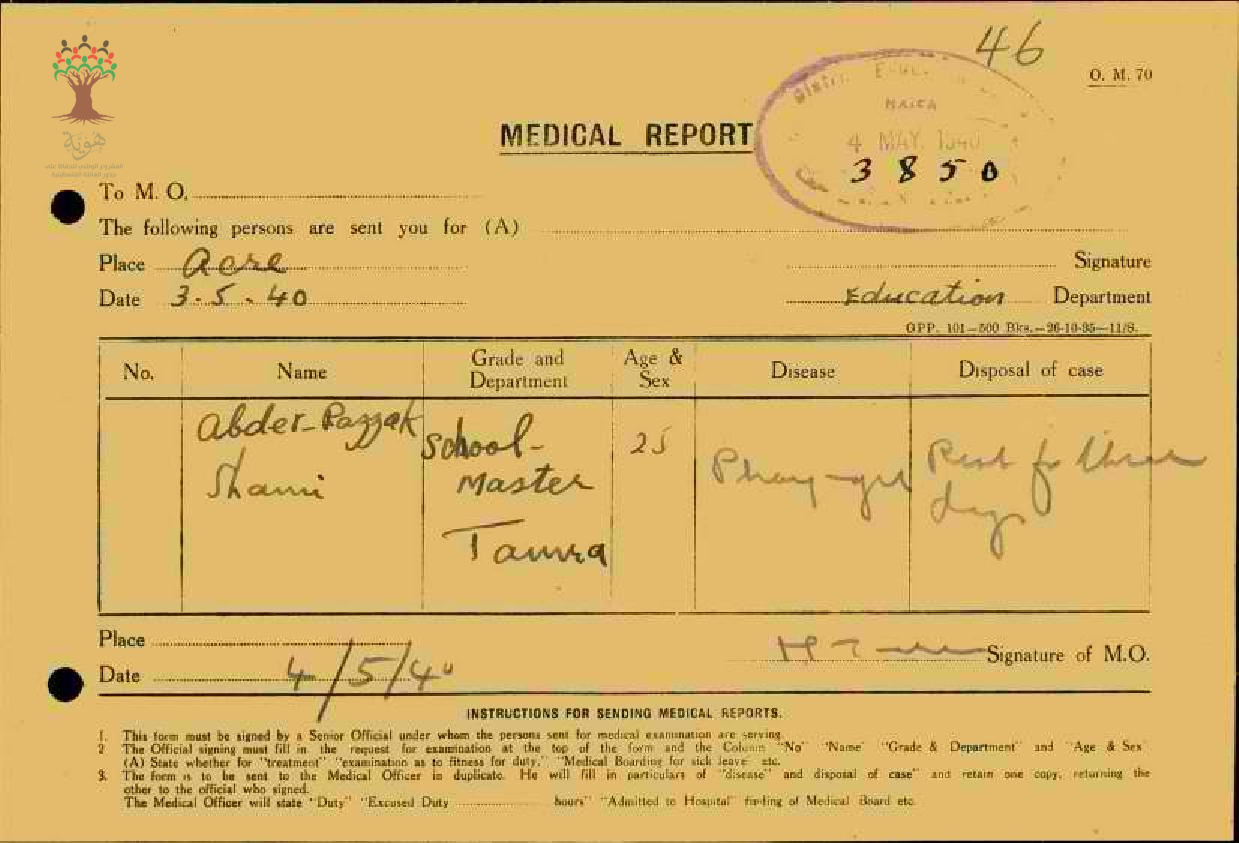 46
O. M. 70
هوية
HAIFA
4 MAY. 1940
3850
MEDICAL REPORT
To M. O.
The following persons are sent you for (A)
Place Acre
Signature
Date 3.5.40
Education Department
GPP. 101—500 Bks.—26-10-35—11/S.
No. Name Grade and Department Age & Sex Disease Disposal of case
Abder-Razzak School- 25 Rest for three
Shami Master days
Tamra
Place
Signature of M.O.
Date 4/5/40
INSTRUCTIONS FOR SENDING MEDICAL REPORTS.
1. This form must be signed by a Senior Official under whom the persons sent for medical examination are serving.
2 The Official signing must fill in the request for examination at the top of the form and the Column "No" 'Name' "Grade & Department" and "Age & Sex"
(A) State whether for "treatment" "examination as to fitness for duty," "Medical Boarding for sick leave" etc.
3. The form is to be sent to the Medical Officer in duplicate. He will fill in particulars of "disease" and disposal of case" and retain one copy, returning the
other to the official who signed.
The Medical Officer will state "Duty" "Excused Duty ........ hours" "Admitted to Hospital" finding of Medical Board etc.